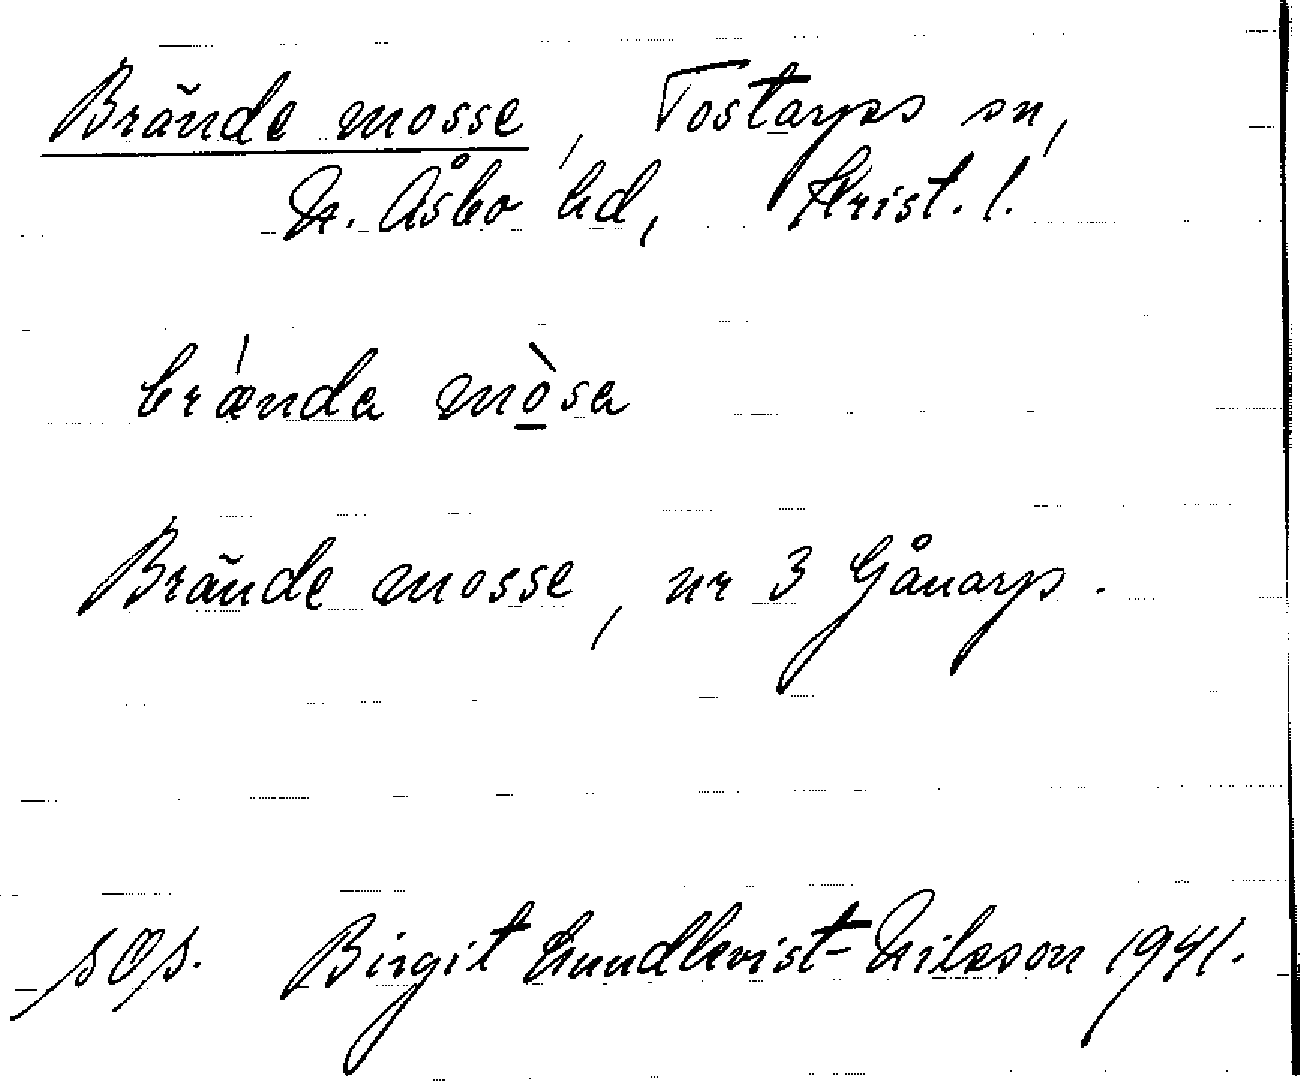 Brände mosse, Tostarps sn,
N. Åsbo hd, Krist. l.
brǽnda mò̱sa
Brände mosse, nr 3 Gånarp.
sOp. Birgit Lundkvist-Nilsson 1941.